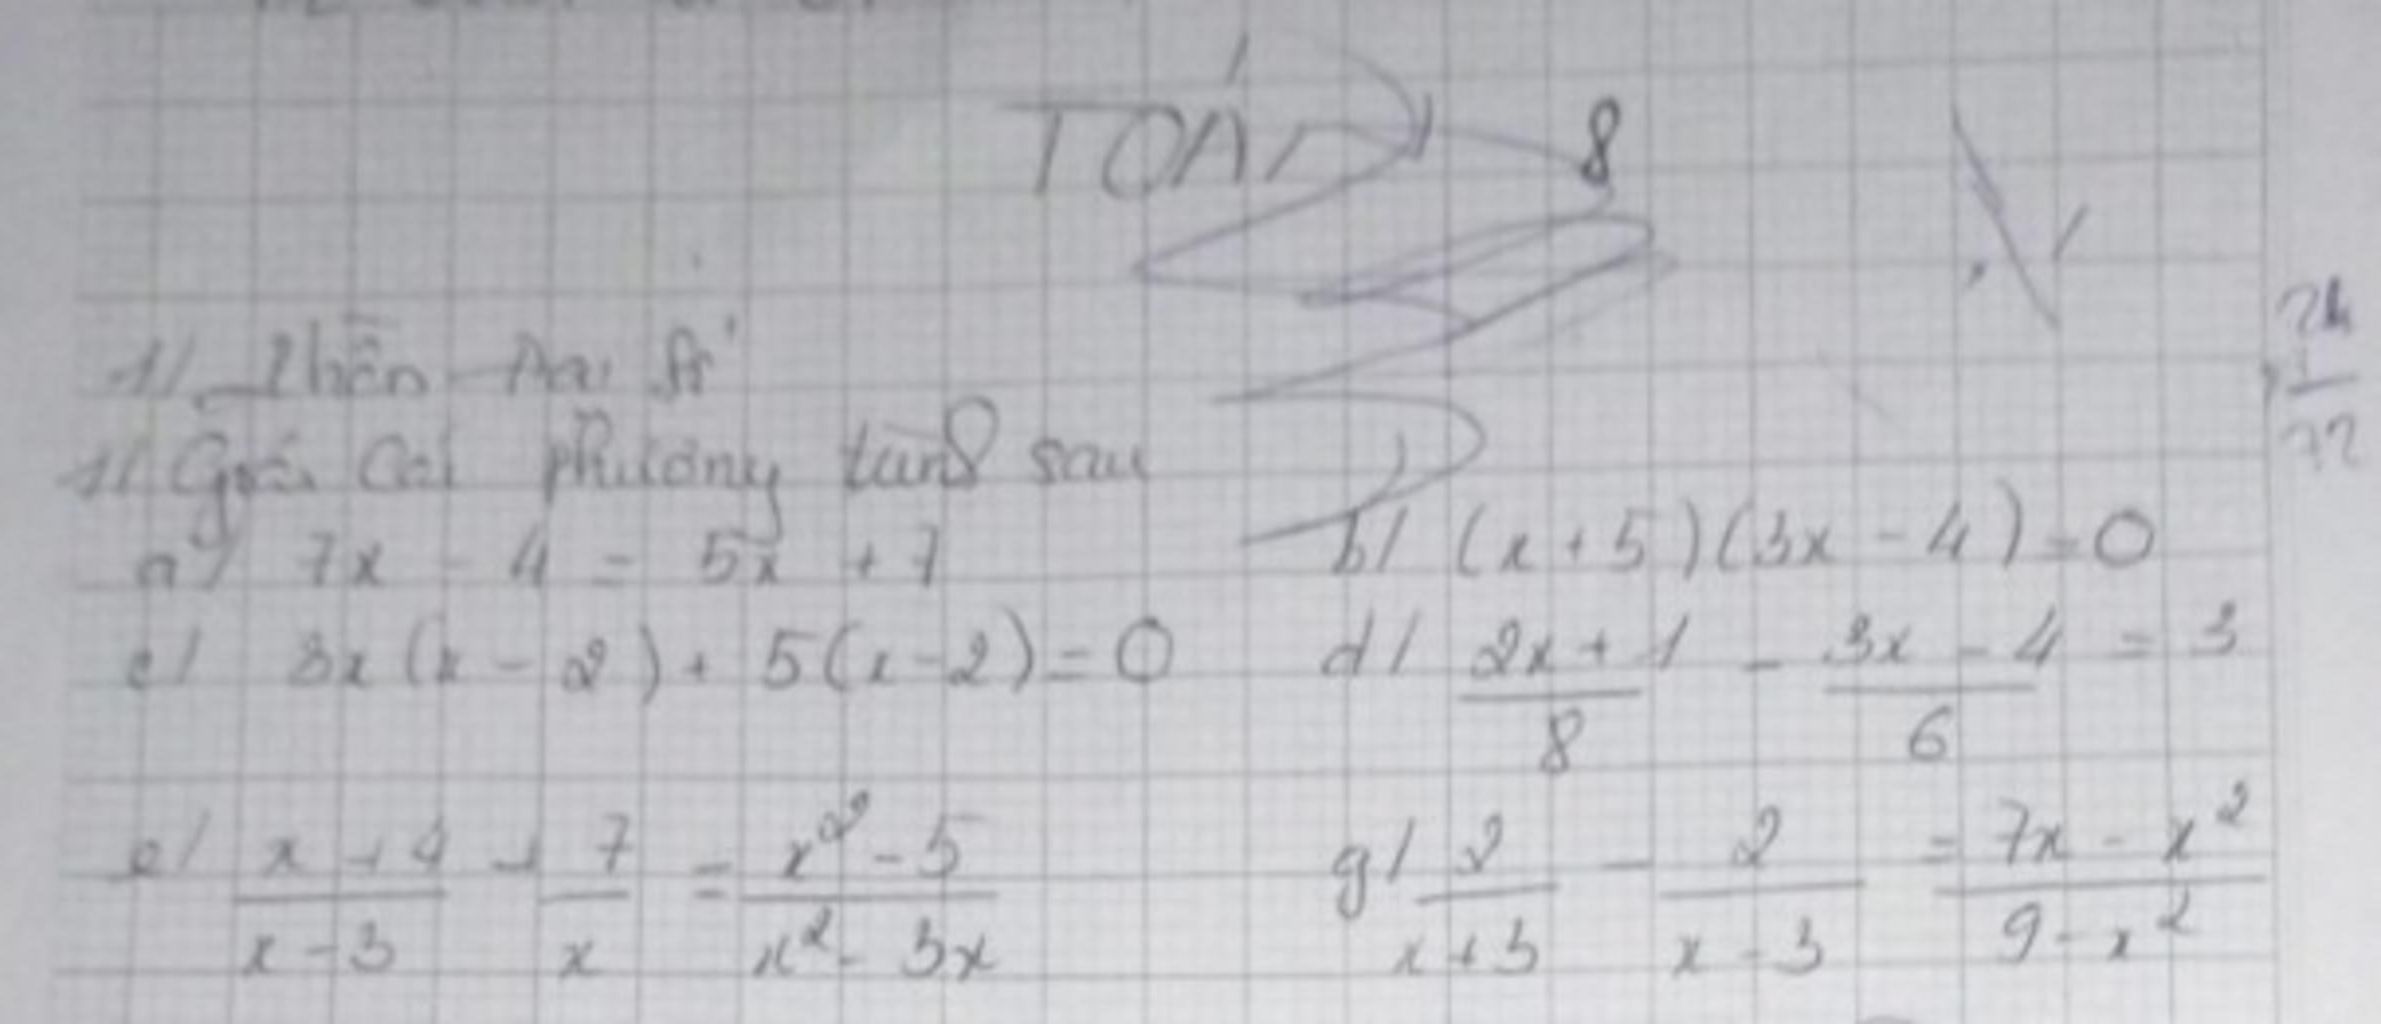 TOÁN 8
1/ Phần Đại số
1/ Giải các phương trình sau
a/ 7x - 4 = 5x + 7 b/ (x + 5)(3x - 4) = 0
c/ 3x(x - 2) + 5(x - 2) = 0 d/ \frac{2x + 1}{8} - \frac{3x - 4}{6} = 3
e/ \frac{x + 4}{x - 3} + \frac{7}{x} = \frac{x² - 5}{x² - 3x} g/ \frac{2}{x + 3} - \frac{2}{x - 3} = \frac{7x - x²}{9 - x²}